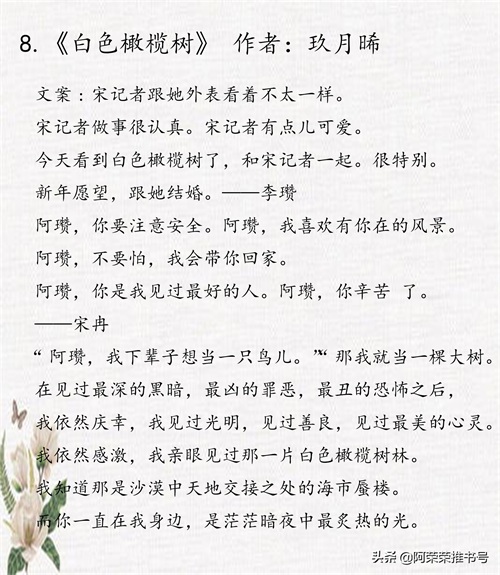 8.《白色橄榄树》 作者：玖月晞
文案：宋记者跟她外表看着不太一样。
宋记者做事很认真。宋记者有点儿可爱。
今天看到白色橄榄树了，和宋记者一起。很特别。
新年愿望，跟她结婚。——李瓒
阿瓒，你要注意安全。阿瓒，我喜欢有你在的风景。
阿瓒，不要怕，我会带你回家。
阿瓒，你是我见过最好的人。阿瓒，你辛苦 了。
——宋冉
“ 阿瓒，我下辈子想当一只鸟儿。”“ 那我就当一棵大树。
在见过最深的黑暗，最凶的罪恶，最丑的恐怖之后，
我依然庆幸，我见过光明，见过善良，见过最美的心灵。
我依然感激，我亲眼见过那一片白色橄榄树林。
我知道那是沙漠中天地交接之处的海市蜃楼。
而你一直在我身边，是茫茫暗夜中最炙热的光。
头条 @阿荣荣推书号